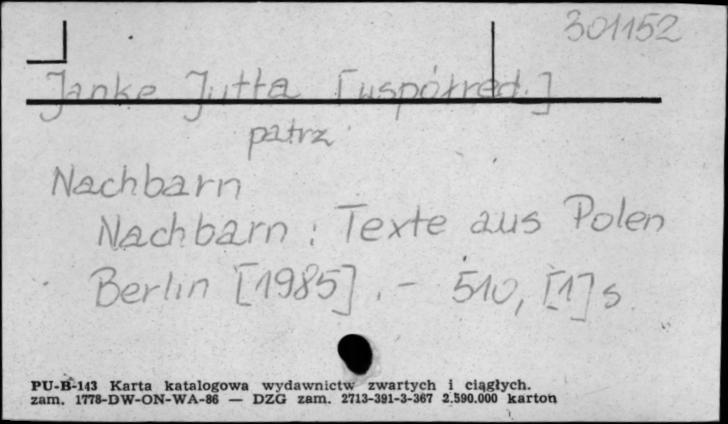 301152
Janke Jutta [współred.]
patrz
Nachbarn
Nachbarn : Texte aus Polen
Berlin [1985]. - 510, [1] s
PU-B-143 Karta katalogowa wydawnictw zwartych i ciągłych.
zam. 1778-DW-ON-WA-86 — DZG zam. 2713-391-3-367 2.590.000 karton